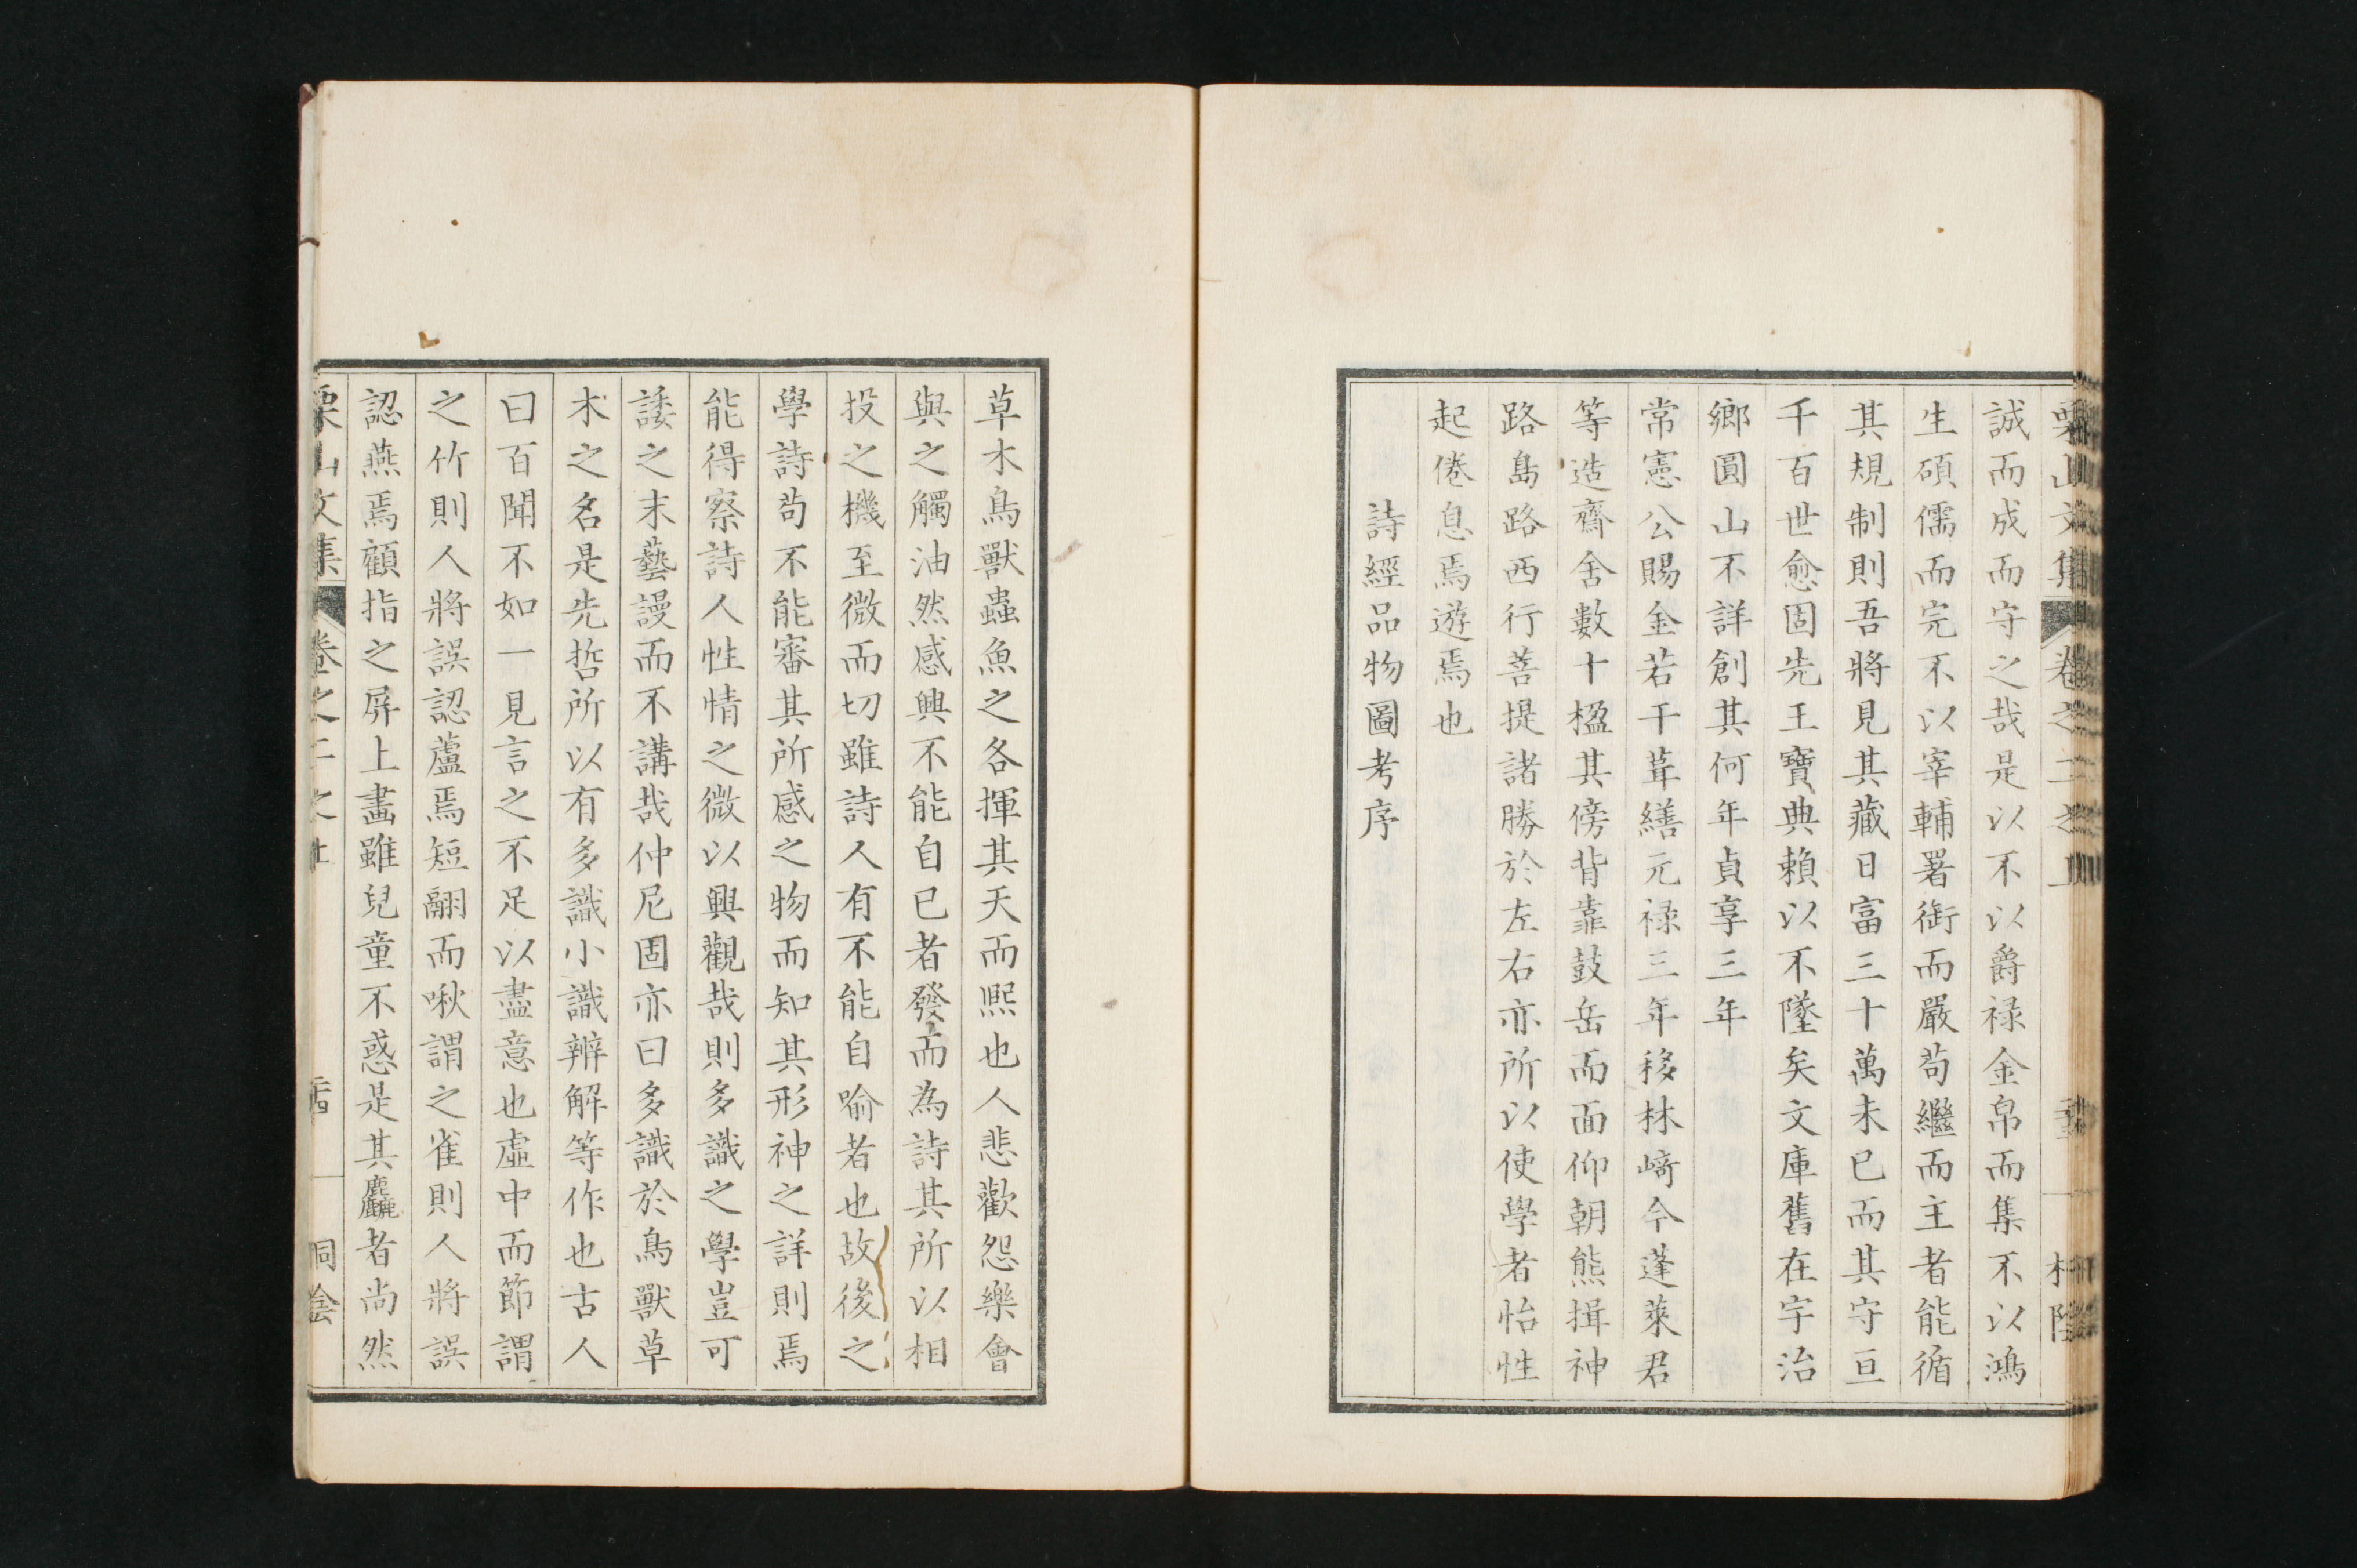 栗山文集 卷之二之上
誠而成而守之哉是以不以爵禄金帛而集不以鴻
生碩儒而完不以宰輔署銜而嚴苟繼而主者能循
其規制則吾將見其藏日富三十萬未已而其守亘
千百世愈固先王寶典賴以不墜矣文庫舊在宇治
鄉圓山不詳創其何年貞享三年
常憲公賜金若干葺繕元禄三年移林﨑今蓬萊君
等造齋舍數十楹其傍背靠鼓岳而面仰朝熊揖神
路島路西行菩提諸勝於左右亦所以使學者怡性
起倦息焉遊焉也
詩經品物圖考序
草木鳥獸蟲魚之各揮其天而熈也人悲歡怨樂會
與之觸油然感興不能自已者發而為詩其所以相
投之機至微而切雖詩人有不能自喻者也故後之
學詩苟不能審其所感之物而知其形神之詳則焉
能得察詩人性情之微以興觀哉則多識之學豈可
諉之末藝謾而不講哉仲尼固亦曰多識於鳥獸草
木之名是先哲所以有多識小識辨解等作也古人
曰百聞不如一見言之不足以盡意也虛中而節謂
之竹則人將誤認蘆焉短翮而啾謂之雀則人將誤
認燕焉顧指之屏上畫雖兒童不惑是其麤者尚然
栗山文集 卷之二之上 二十四